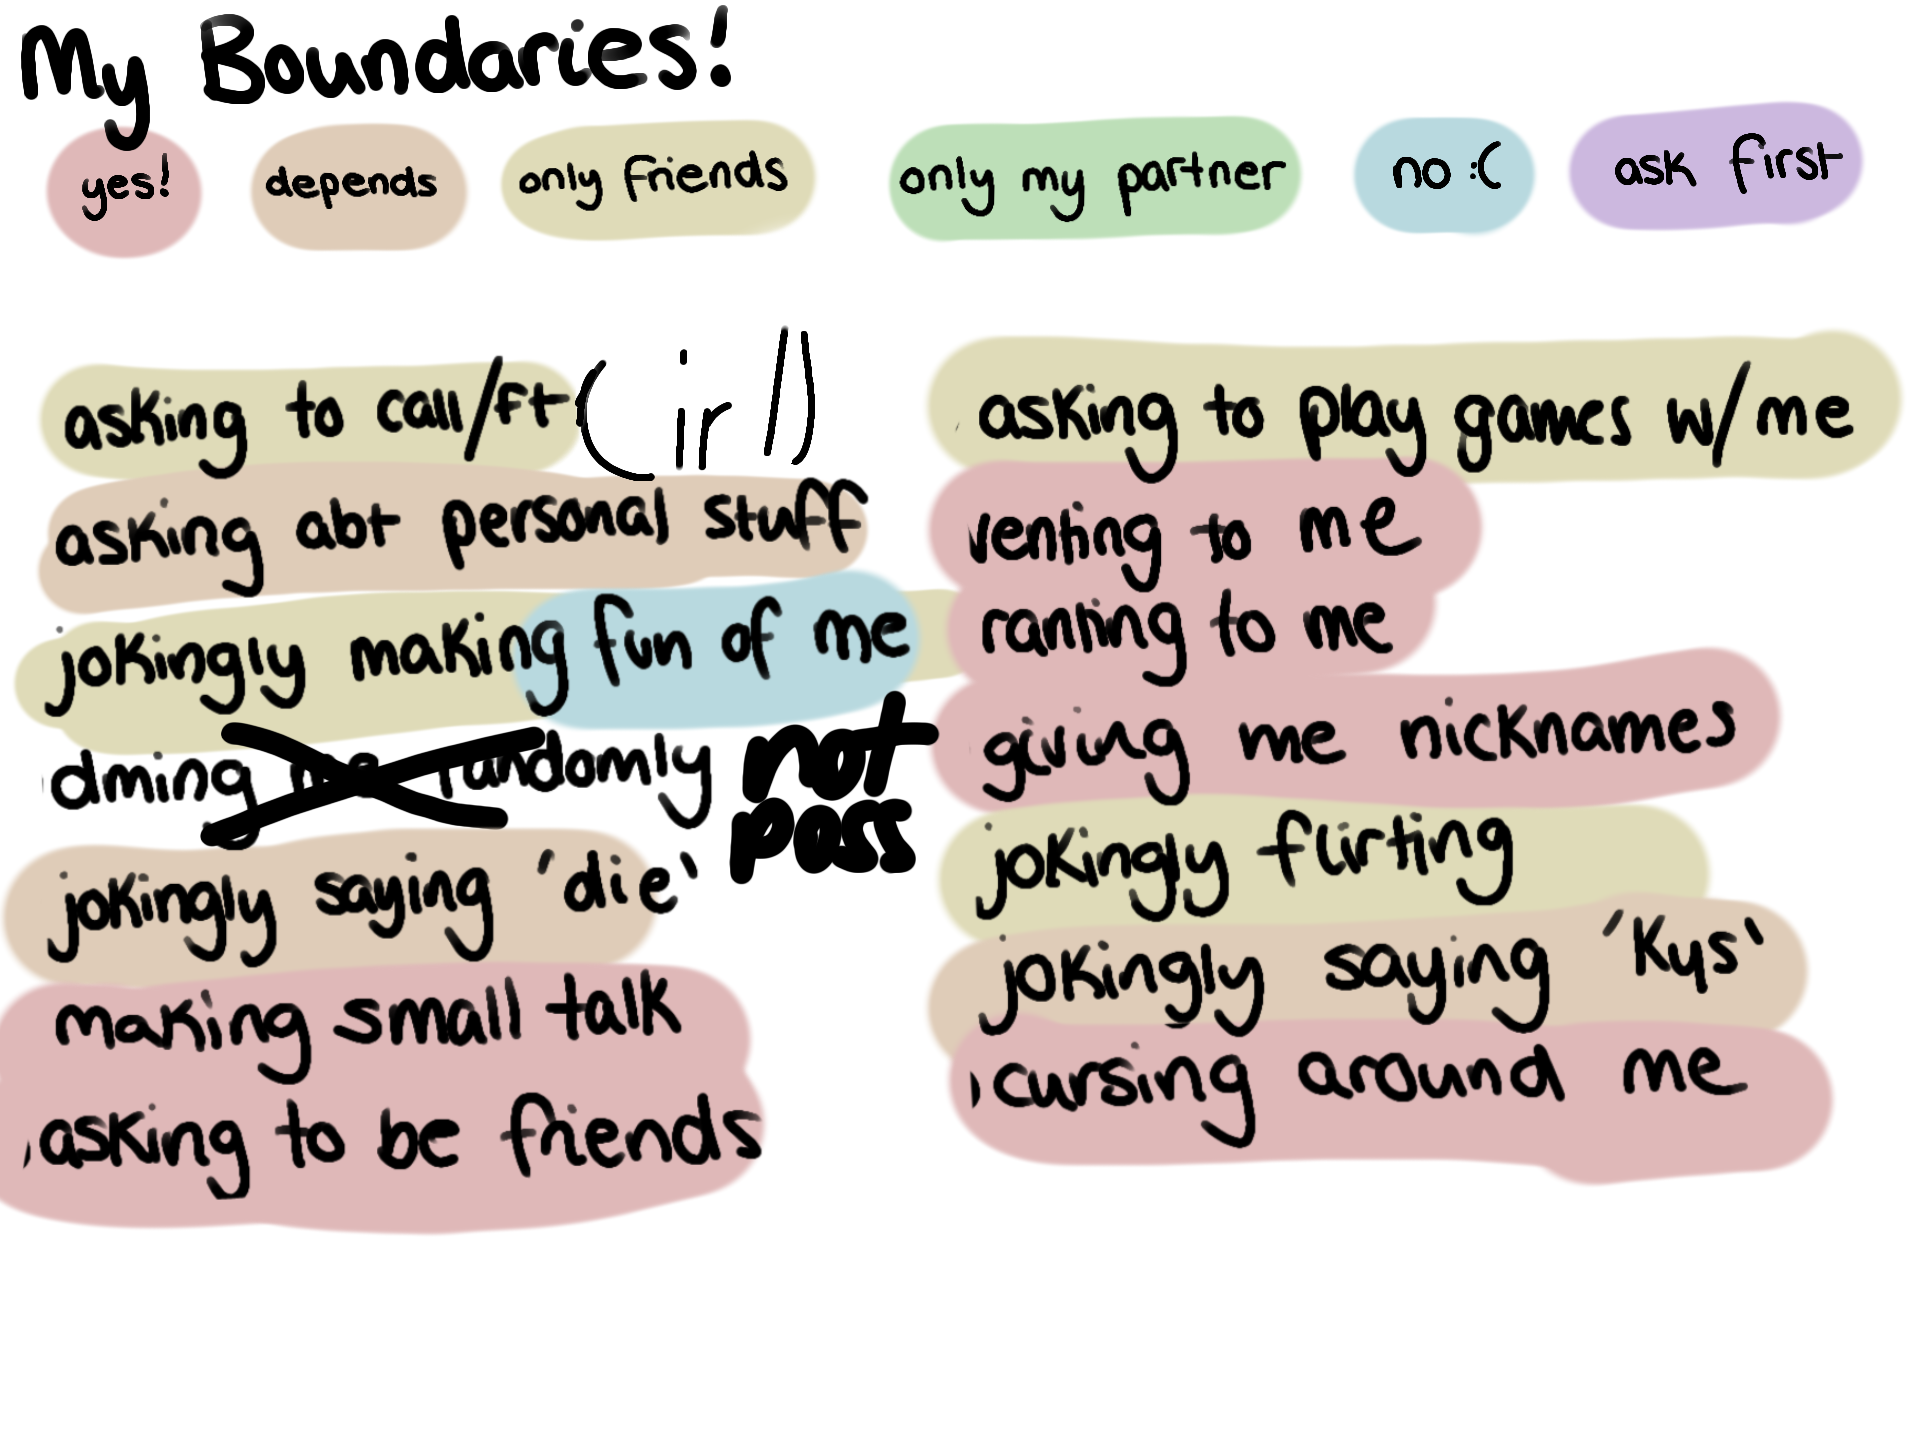 My Boundaries!
yes!
depends
only friends
only my partner
no :(
ask first
asking to call/ft (irl)
asking abt personal stuff
jokingly making fun of me
dming me randomly
not
pass
jokingly saying 'die'
making small talk
asking to be friends
asking to play games w/me
venting to me
ranting to me
giving me nicknames
jokingly flirting
jokingly saying 'kys'
cursing around me